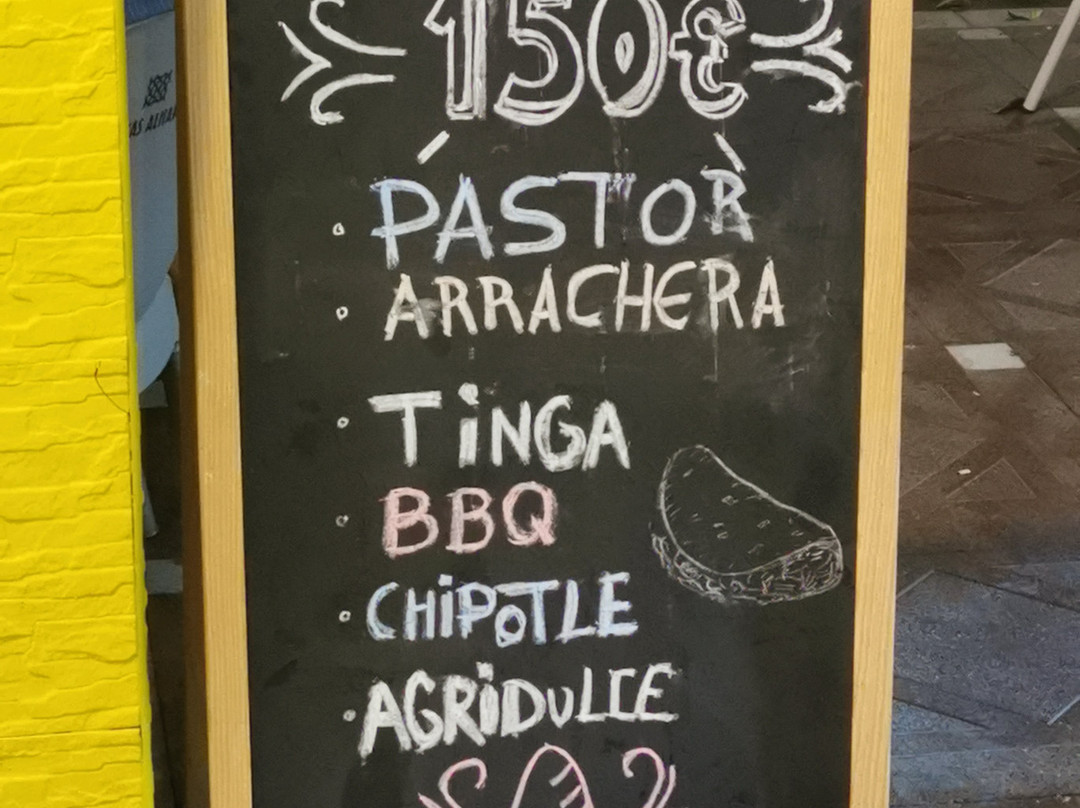 150€
PASTOR
ARRACHERA
TiNGA
BBQ
CHiPOTLE
AGRiDuLCE